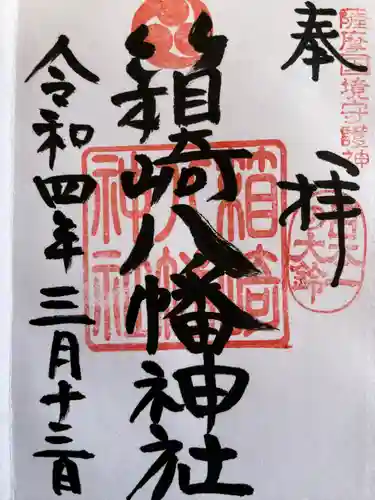 奉拝
薩摩国境守護神
日本一大鈴
箱崎八幡神社
箱崎八幡神社
令和四年三月十三日